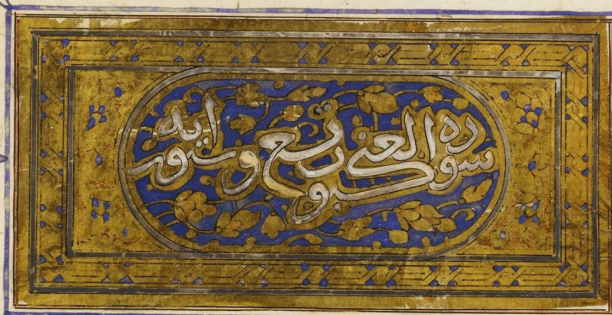 سوره العنكبوت تسع وستون ايه